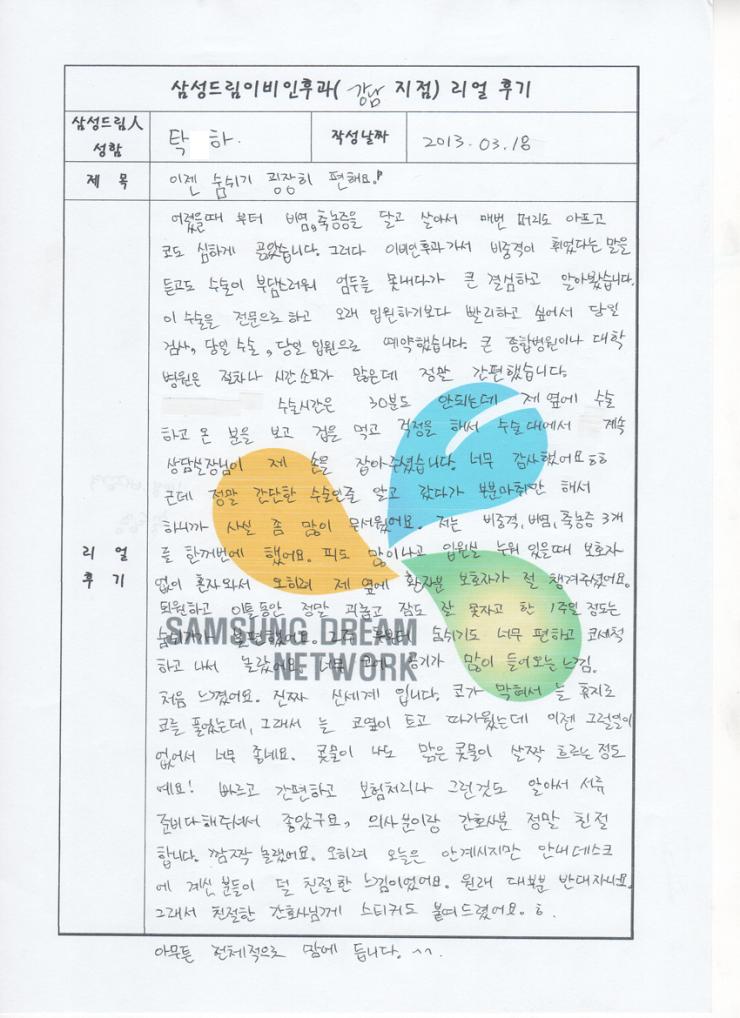 삼성드림이비인후과( 강남 지점) 리얼 후기
삼성드림人 성함
탁 하.
작성날짜
2013.03.18
제 목
이젠 숨쉬기 굉장히 편해요!
리 얼 후 기
어렸을때 부터 비염,축농증을 달고 살아서 매번 머리도 아프고
코도 심하게 골았습니다. 그러다 이비인후과가서 비중격이 휘었다는 말을
듣고도 수술이 부담스러워 엄두를 못내다가 큰 결심하고 알아봤습니다.
이 수술을 전문으로 하고 오래 입원하기보다 빨리하고 싶어서 당일
검사, 당일 수술, 당일 입원으로 예약했습니다. 큰 종합병원이나 대학
병원은 절차나 시간소요가 많은데 정말 간편했습니다.
수술시간은 30분도 안되는데 제 옆에 수술
하고 온 분을 보고 겁을 먹고 걱정을 해서 수술대에서 계속
상담실장님이 제 손을 잡아주셨습니다. 너무 감사했어요ㅎㅎ
근데 정말 간단한 수술인줄 알고 갔다가 부분마취만 해서
하니까 사실 좀 많이 무서웠어요. 저는 비중격,비염,축농증 3개
를 한꺼번에 했어요. 피도 많이나고 입원실 누워 있을때 보호자
없이 혼자와서 오히려 제 옆에 환자분 보호자가 절 챙겨주셨어요.
퇴원하고 이틀동안 정말 괴롭고 잠도 잘 못자고 한 1주일 정도는
숨쉬기가 불편했어요. 숨쉬기도 너무 편하고 코세척
하고 나서 놀랐어요. 너무 공기가 많이 들어오는 느낌.
SAMSUNG DREAM
NETWORK
처음 느꼈어요. 진짜 신세계 입니다. 코가 막혀서 늘 휴지로
코를 풀었는데, 그래서 늘 코옆이 트고 따가웠는데 이젠 그럴일이
없어서 너무 좋네요. 콧물이 나도 맑은 콧물이 살짝 흐르는 정도
예요! 빠르고 간편하고 보험처리나 그런것도 알아서 서류
준비다해주셔서 좋았구요, 의사분이랑 간호사분 정말 친절
합니다. 깜짝 놀랬어요. 오히려 오늘은 안계시지만 안내데스크
에 계신 분들이 덜 친절한 느낌이었어요. 원래 대부분 반대자나요.
그래서 친절한 간호사님께 스티커도 붙여드렸어요.ㅎ.
아무튼 전체적으로 맘에 듭니다. ^^.